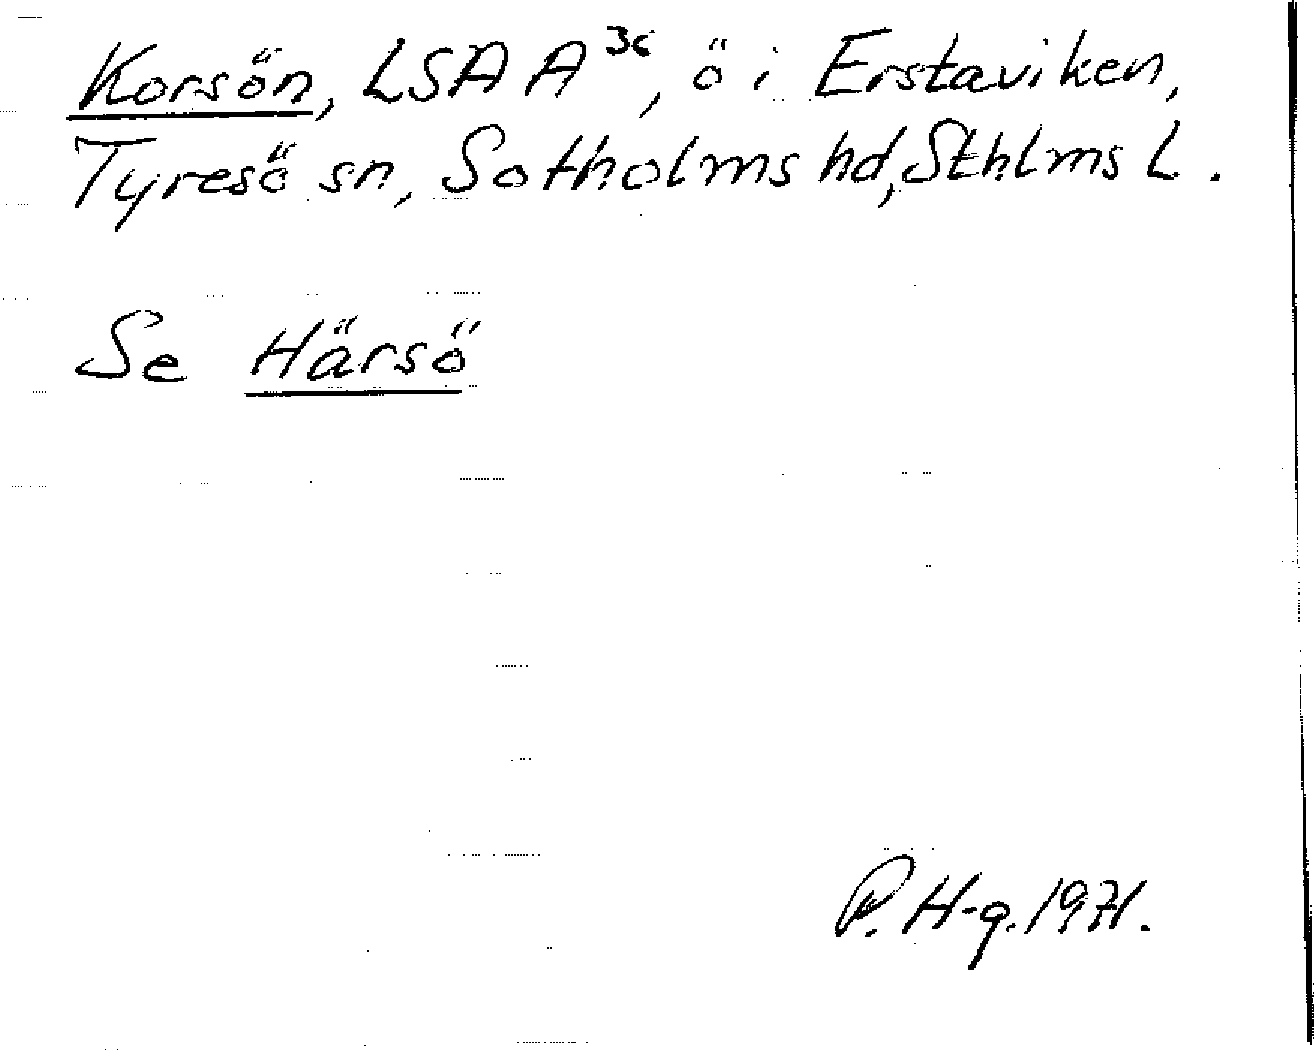 Korsön, LSA A³⁶, ö i Erstaviken,
Tyresö sn, Sotholms hd, Sthlms L.
Se Härsö
P. H-g. 1971.